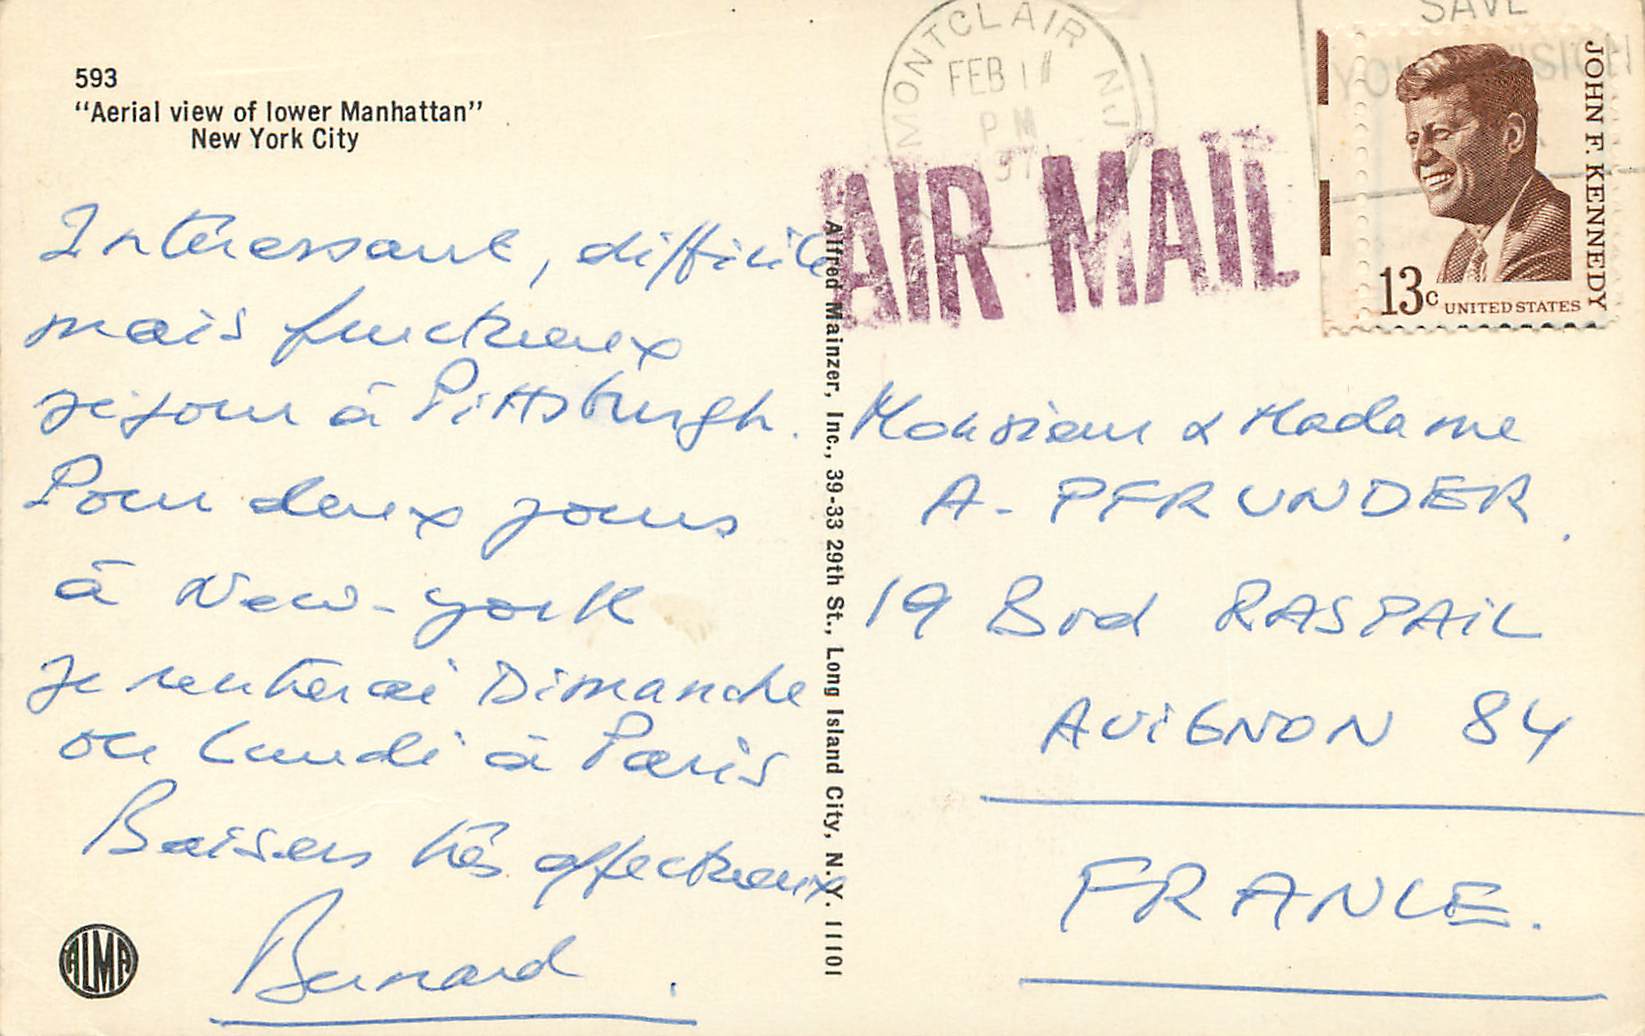 593
"Aerial view of lower Manhattan"
New York City
Intéressant, difficile
mais fructueux
séjour à Pittsburgh.
Pour deux jours
à New-york
Je rentrerai Dimanche
ou Lundi à Paris
Baisers très affectueux
Bernard.
ALMA
Alfred Mainzer, Inc., 39-33 29th St., Long Island City, N.Y. 11101
MONTCLAIR NJ
FEB 11
PM
AIR MAIL
SAVE
YOUR VISION
JOHN F. KENNEDY
13c UNITED STATES
Monsieur & Madame
A. PFRUNDER.
19 Bvd RASPAIL
AVIGNON 84
FRANCE.